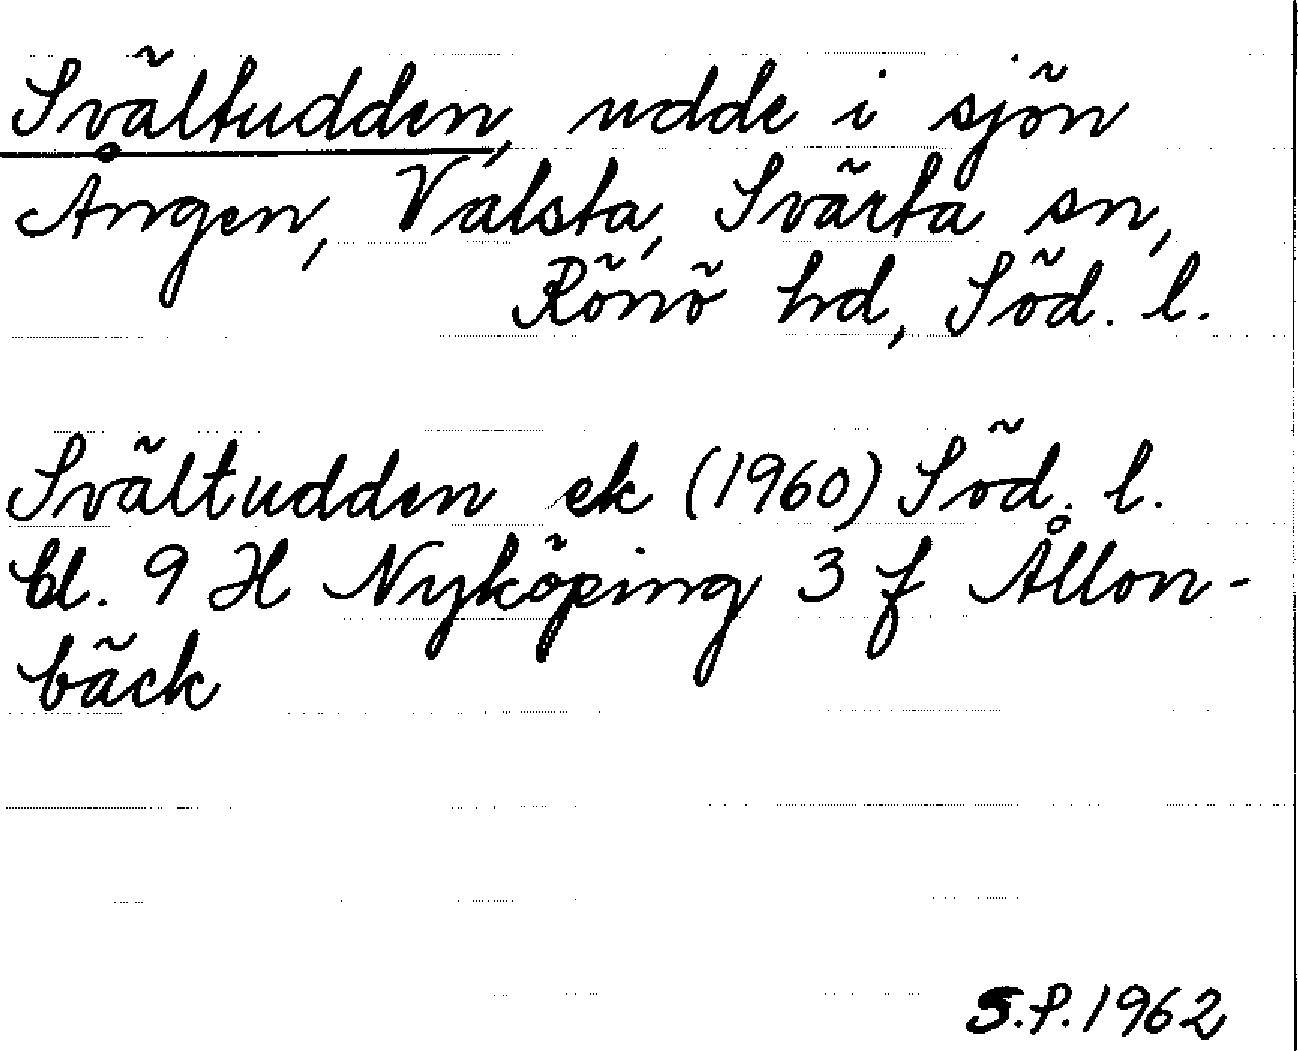 Svältudden, udde i sjön
Ången, Valsta, Svärta sn,
Rönö hd, Söd. l.
Svältudden ek (1960) Söd. l.
bl. 9 H Nyköping 3 f Ållon-
bäck
S.P. 1962